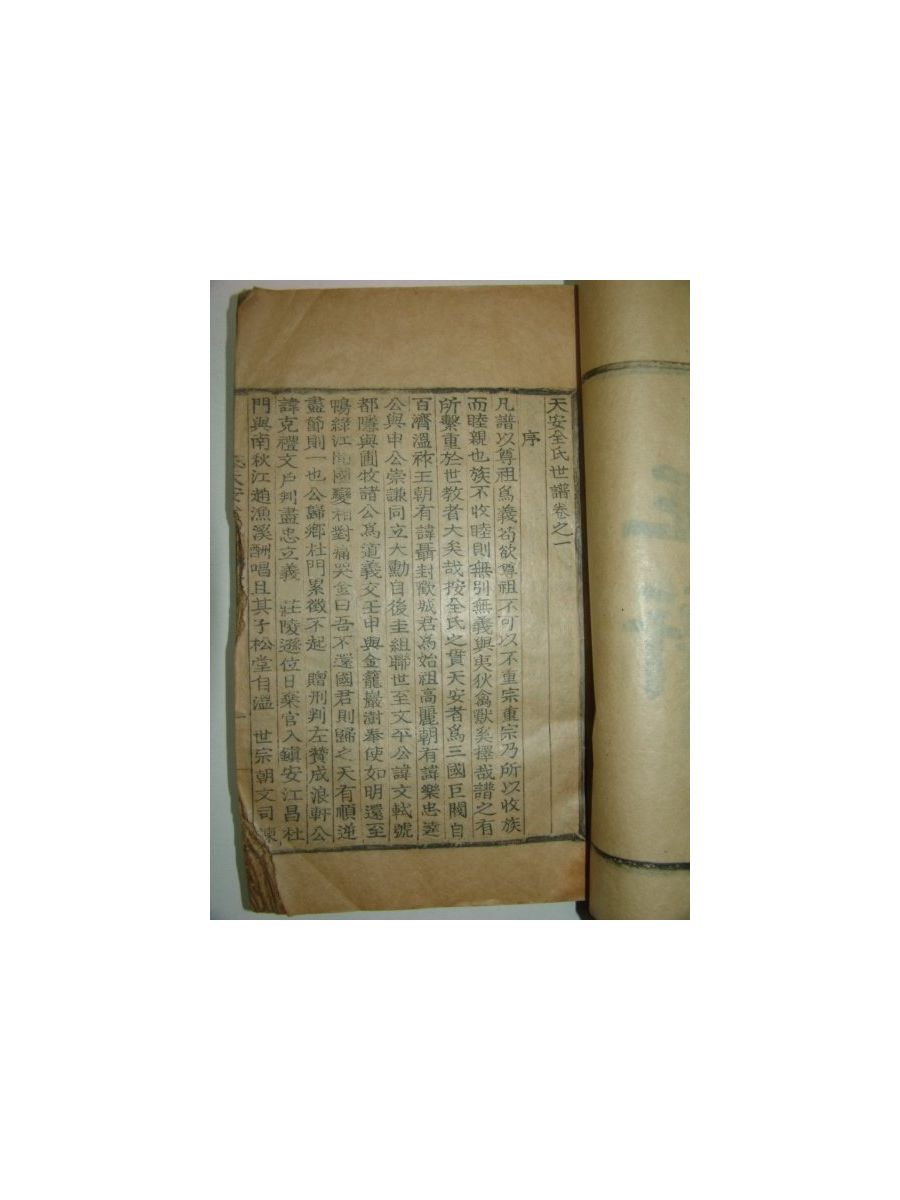 天安全氏世譜卷之一
序
凡譜以尊祖爲義苟欲尊祖不可以不重宗重宗乃所以收族
而睦親也族不收睦則無別無義與夷狄禽獸奚擇哉譜之有
所繫重於世教者大矣哉按全氏之貫天安者爲三國巨閥自
百濟溫祚王朝有諱聶封歡城君爲始祖高麗朝有諱樂忠達
公與申公崇謙同立大勳自後圭組聯世至文平公諱文軾號
都隱與圃牧諸公爲道義交壬申與金籠巖澍奉使如明還至
鴨綠江聞國變相對痛哭金曰吾不還國君則歸之天有順逆
盡節則一也公歸鄉杜門累徵不起 贈刑判左贊成浪軒公
諱克禮文戶判盡忠立義 莊陵遜位日棄官入鎭安江昌杜
門與南秋江趙漁溪酬唱且其子松堂自溫 世宗朝文司諫